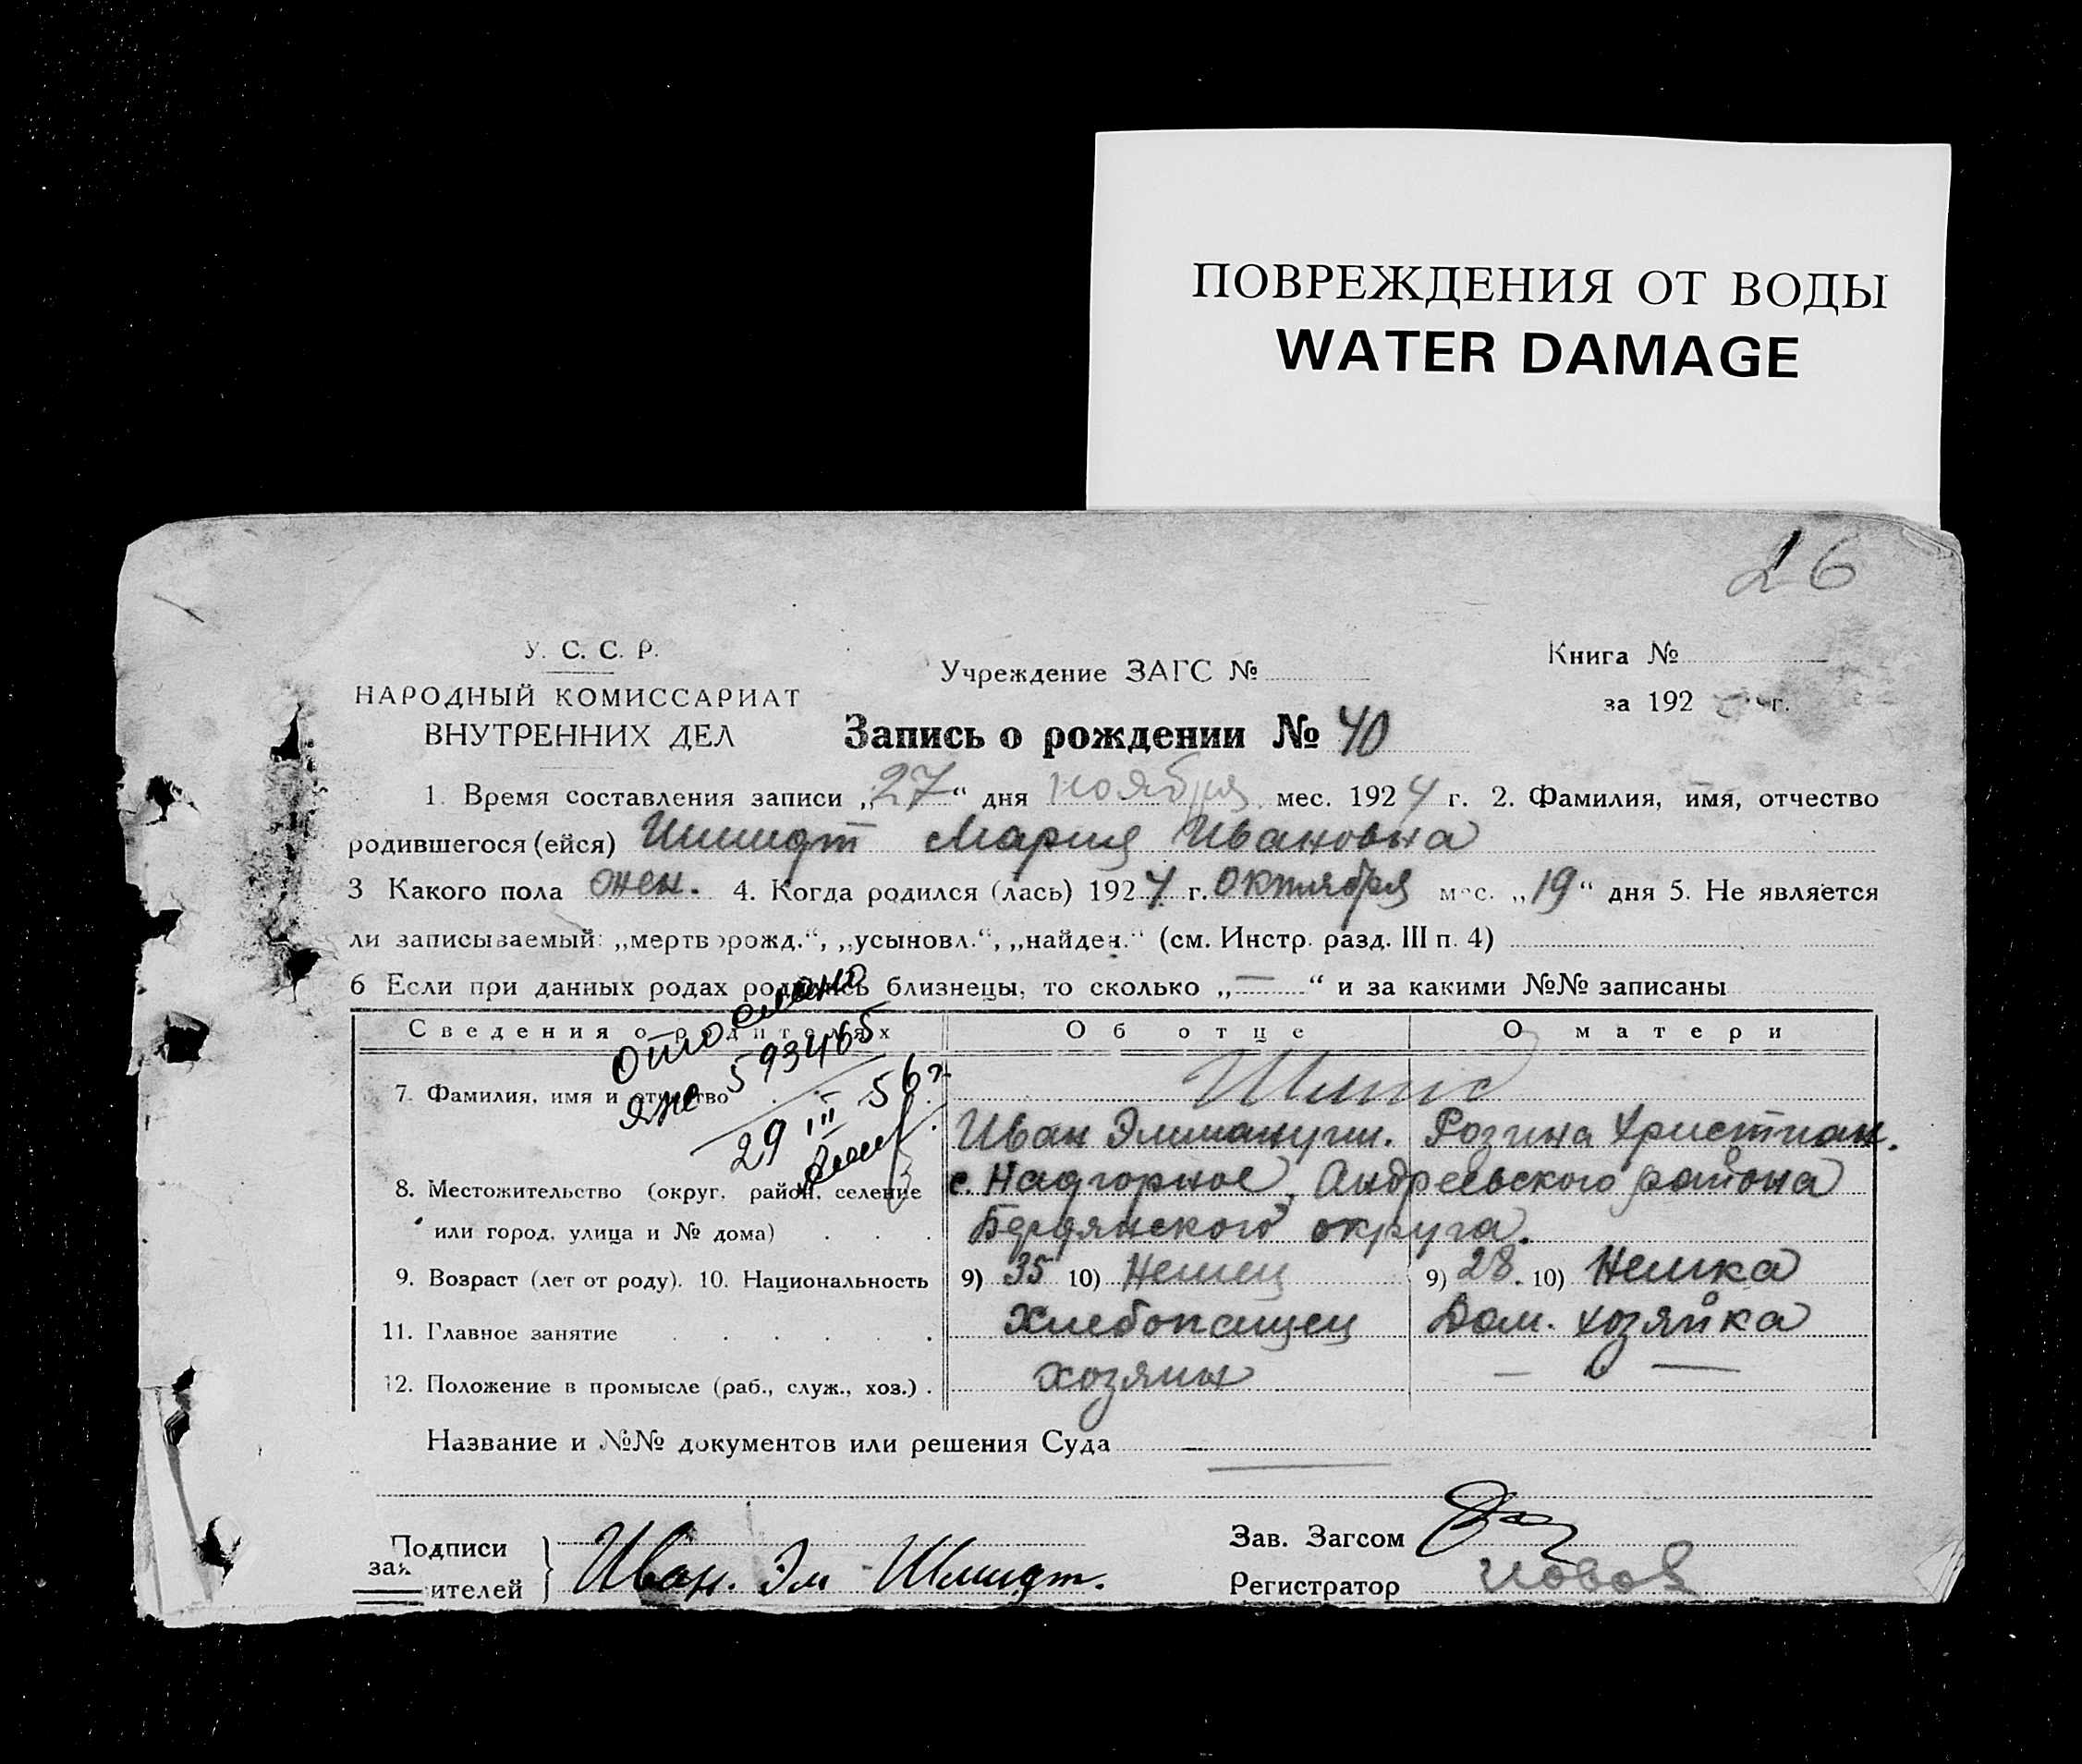 ПОВРЕЖДЕНИЯ ОТ ВОДЫ
WATER DAMAGE
26
У. С. С. Р.
НАРОДНЫЙ КОМИССАРИАТ
ВНУТРЕННИХ ДЕЛ
Учреждение ЗАГС №
Книга №
за 192 г.
Запись о рождении № 40
1. Время составления записи „27“ дня ноября мес. 1924 г. 2. Фамилия, имя, отчество
родившегося (ейся) Шмидт Мария Ивановна
3 Какого пола жен. 4. Когда родился (лась) 1924 г. октября мес. „19“ дня 5. Не является
ли записываемый: „мертворожд.“, „усыновл.“, „найден.“ (см. Инстр. разд. III п. 4)
6 Если при данных родах родились близнецы, то сколько „—“ и за какими №№ записаны
Сведения о родителях Об отце О матери
7. Фамилия, имя и отчество Шмид
Иван Эммануил. Розина Христиан.
8. Местожительство (округ, район, селение с. Надгорное, Андреевского района
или город, улица и № дома) Бердянского округа.
9. Возраст (лет от роду). 10. Национальность 9) 35 10) Немец 9) 28. 10) Немка
11. Главное занятие Хлебопашец Дом. хозяйка
12. Положение в промысле (раб., служ., хоз.) . хозяин — —
отослано
593465
29 III 56 г.
Название и №№ документов или решения Суда —
Подписи заявителей } Иван. Эм Шмидт.
Зав. Загсом
Регистратор